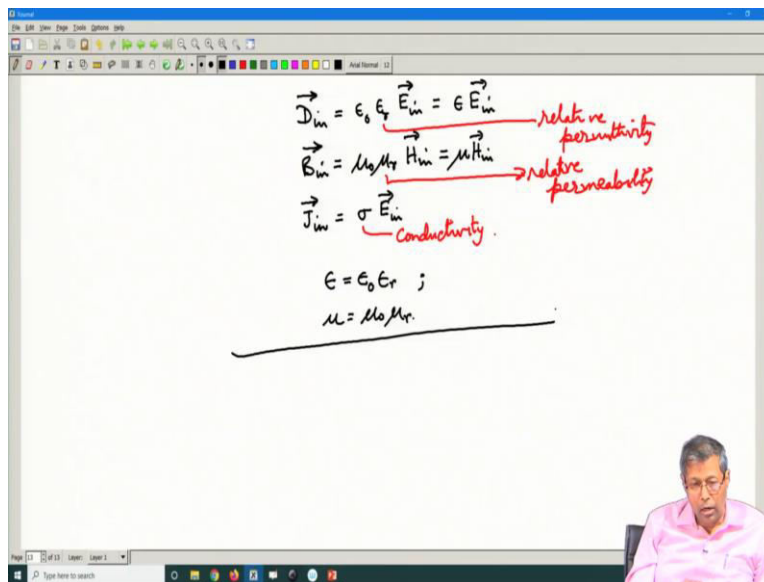 Xournal
File Edit View Page Tools Options Help
Arial Normal 12
D⃗_in = ϵ₀ ϵ_r E⃗_in = ϵ E⃗_in
relative
permittivity
B⃗_in = μ₀ μ_r H⃗_in = μ H⃗_in
relative
permeability
J⃗_in = σ E⃗_in
conductivity.
ϵ = ϵ₀ ϵ_r ;
μ = μ₀ μ_r.
Page 13 of 13 Layer: Layer 1
Type here to search